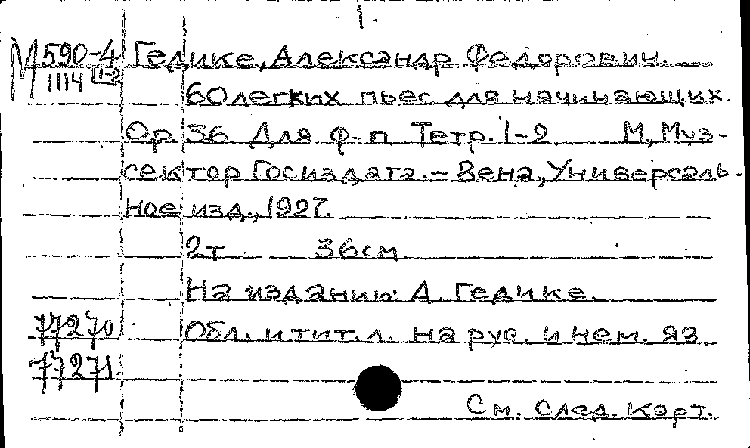 1.
М 590-4 Гедике, Александр Федорович.
1114 1-2 60 легких пьес для начинающих.
Ор. 36 Для ф-п Тетр. 1-2 М, Муз-
сектор Госиздата. - Вена, Универсаль-
ное изд., 1927.
2т 36см
На издании: А. Гедике.
77270 Обл. и тит. л. на рус. и нем. яз
77271
См. след. карт.